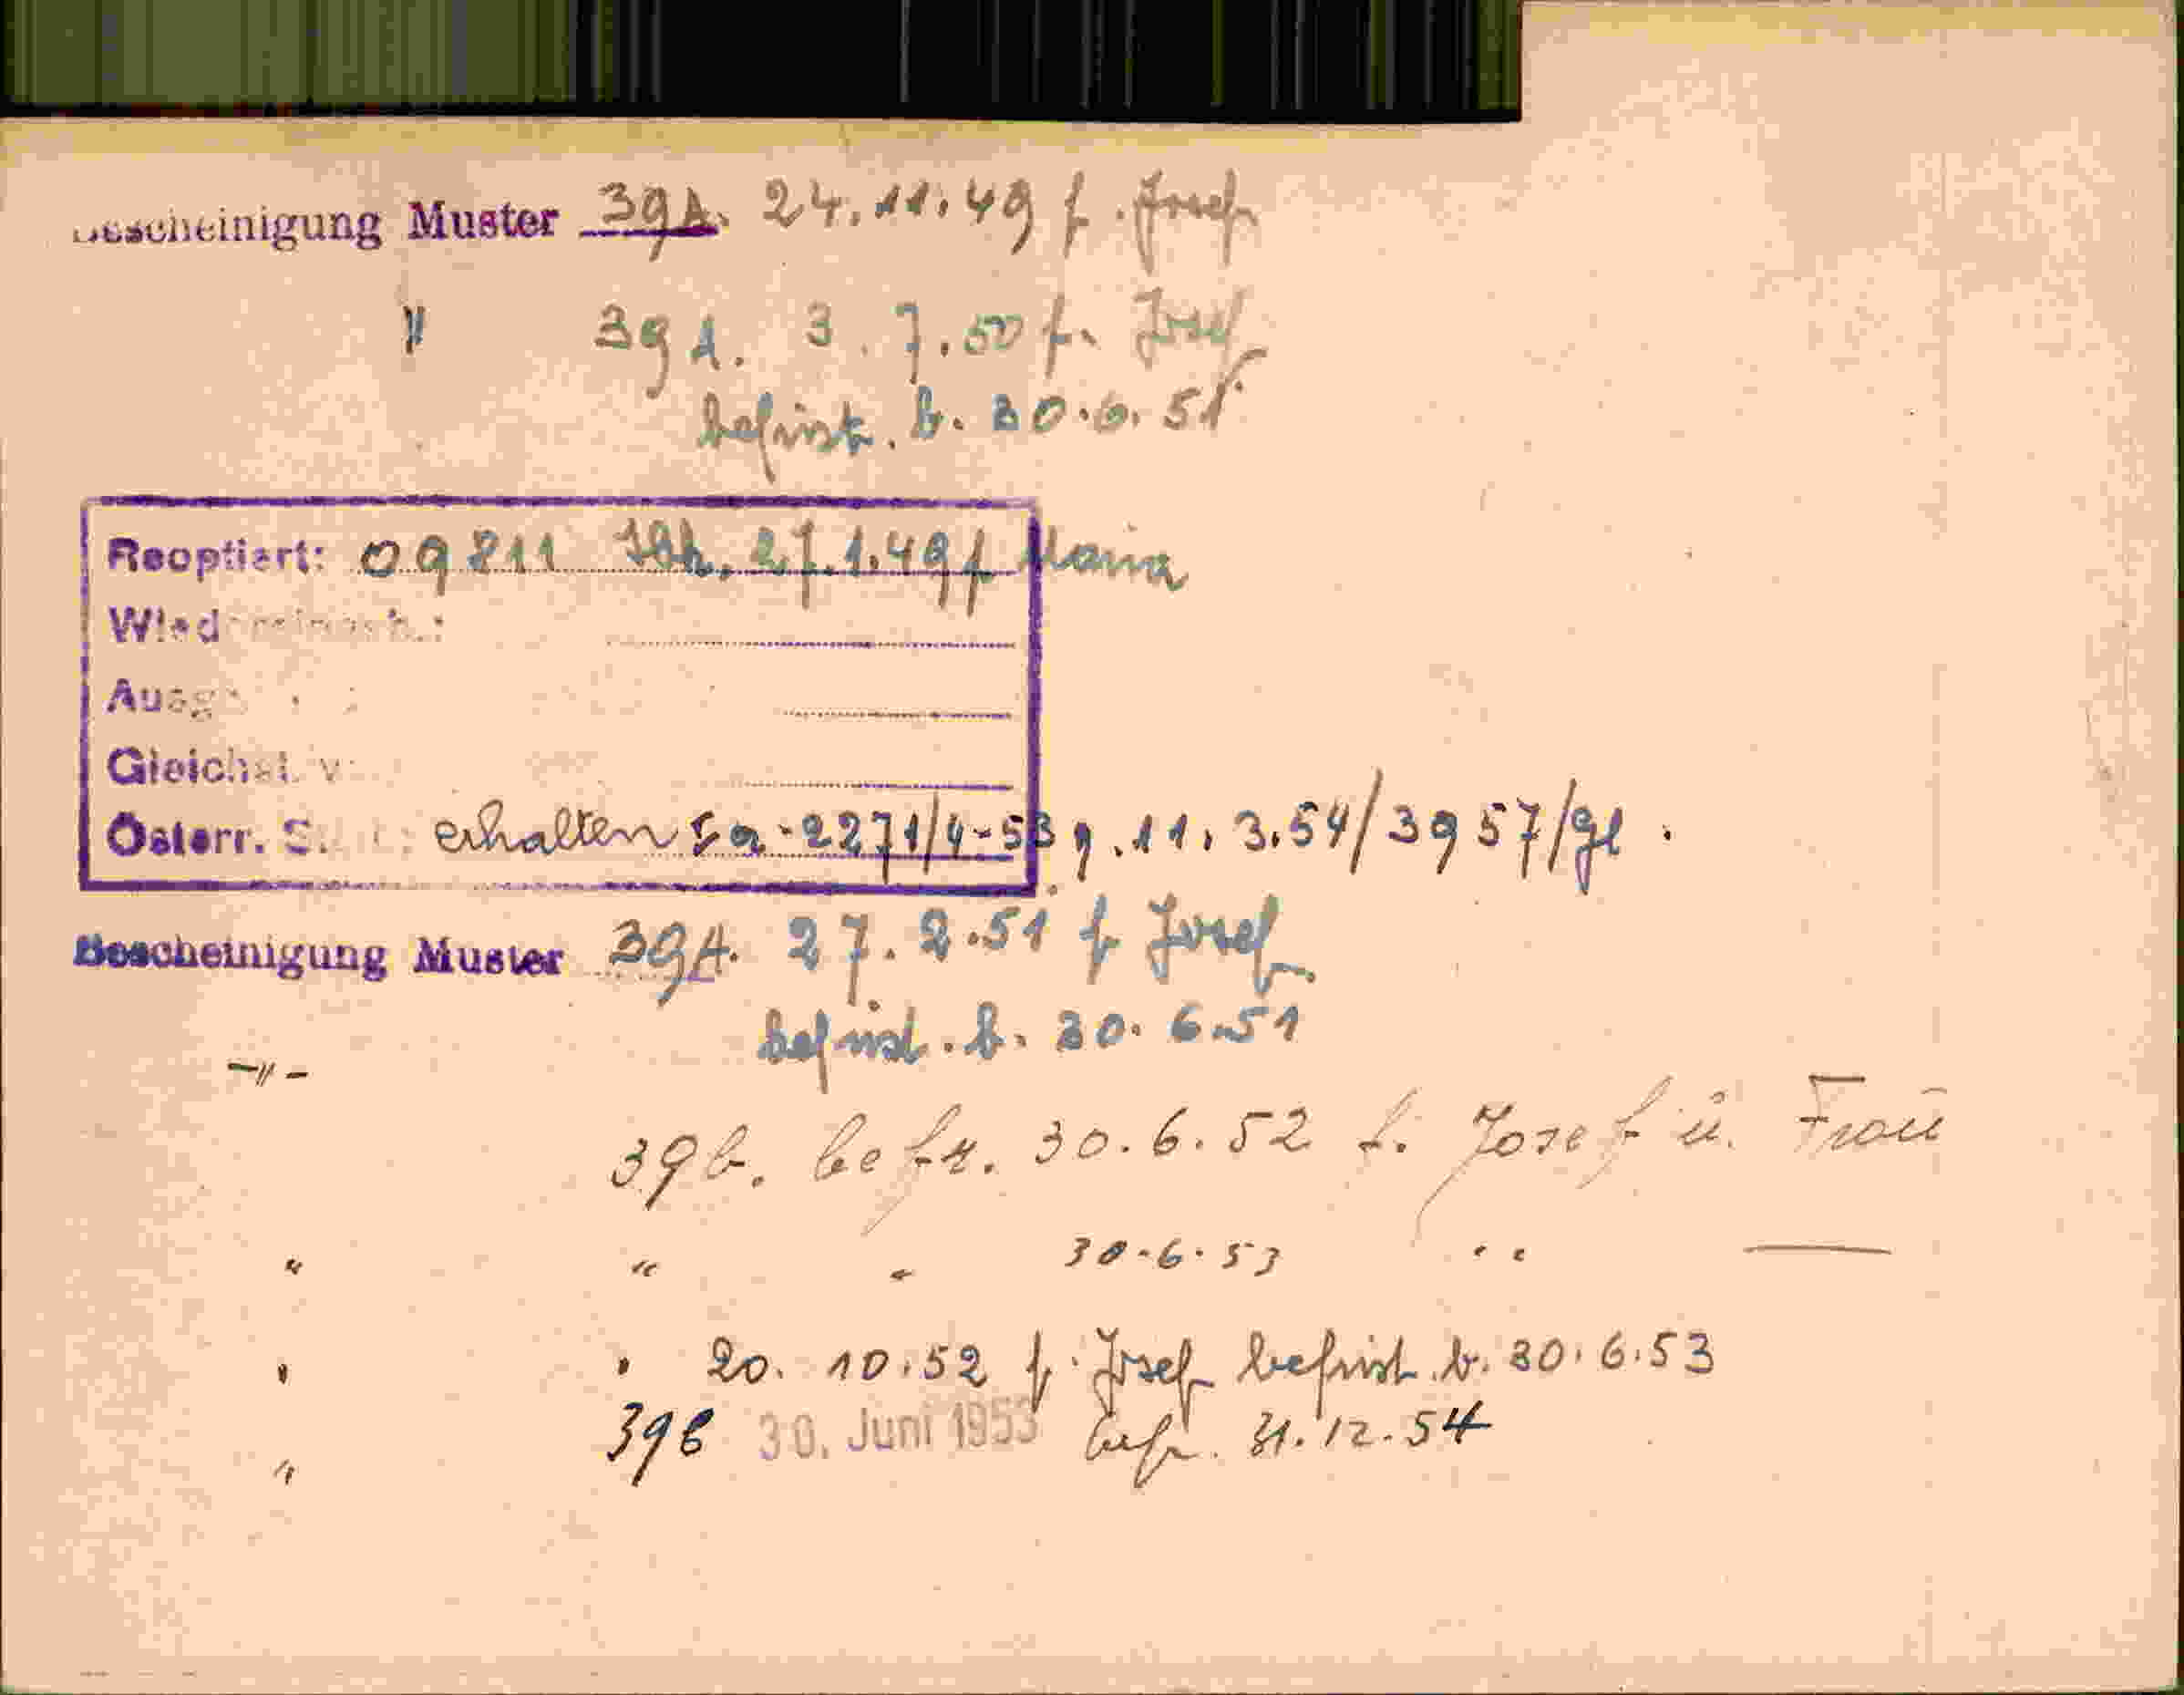 Bescheinigung Muster 39A. 24.11.49 f. Josef
" 39A. 3.7.50 f. Josef
befrist. b. 30.6.51
Reoptiert: 09811 27.1.49 f Maria
Wied
Ausg
Gleichst. v
Österr. S. erhalten Sa-2271/4-53 v. 11.3.54/3957/
Bescheinigung Muster 39A. 27.2.51 f Josef
befrist. b. 30.6.51
-"-
39b. befr. 30.6.52 f. Josef u. Frau
" " " 30.6.53 " "
" " 20.10.52 f. Josef befrist. b. 30.6.53
" 39b 30. Juni 1953 befr. 31.12.54